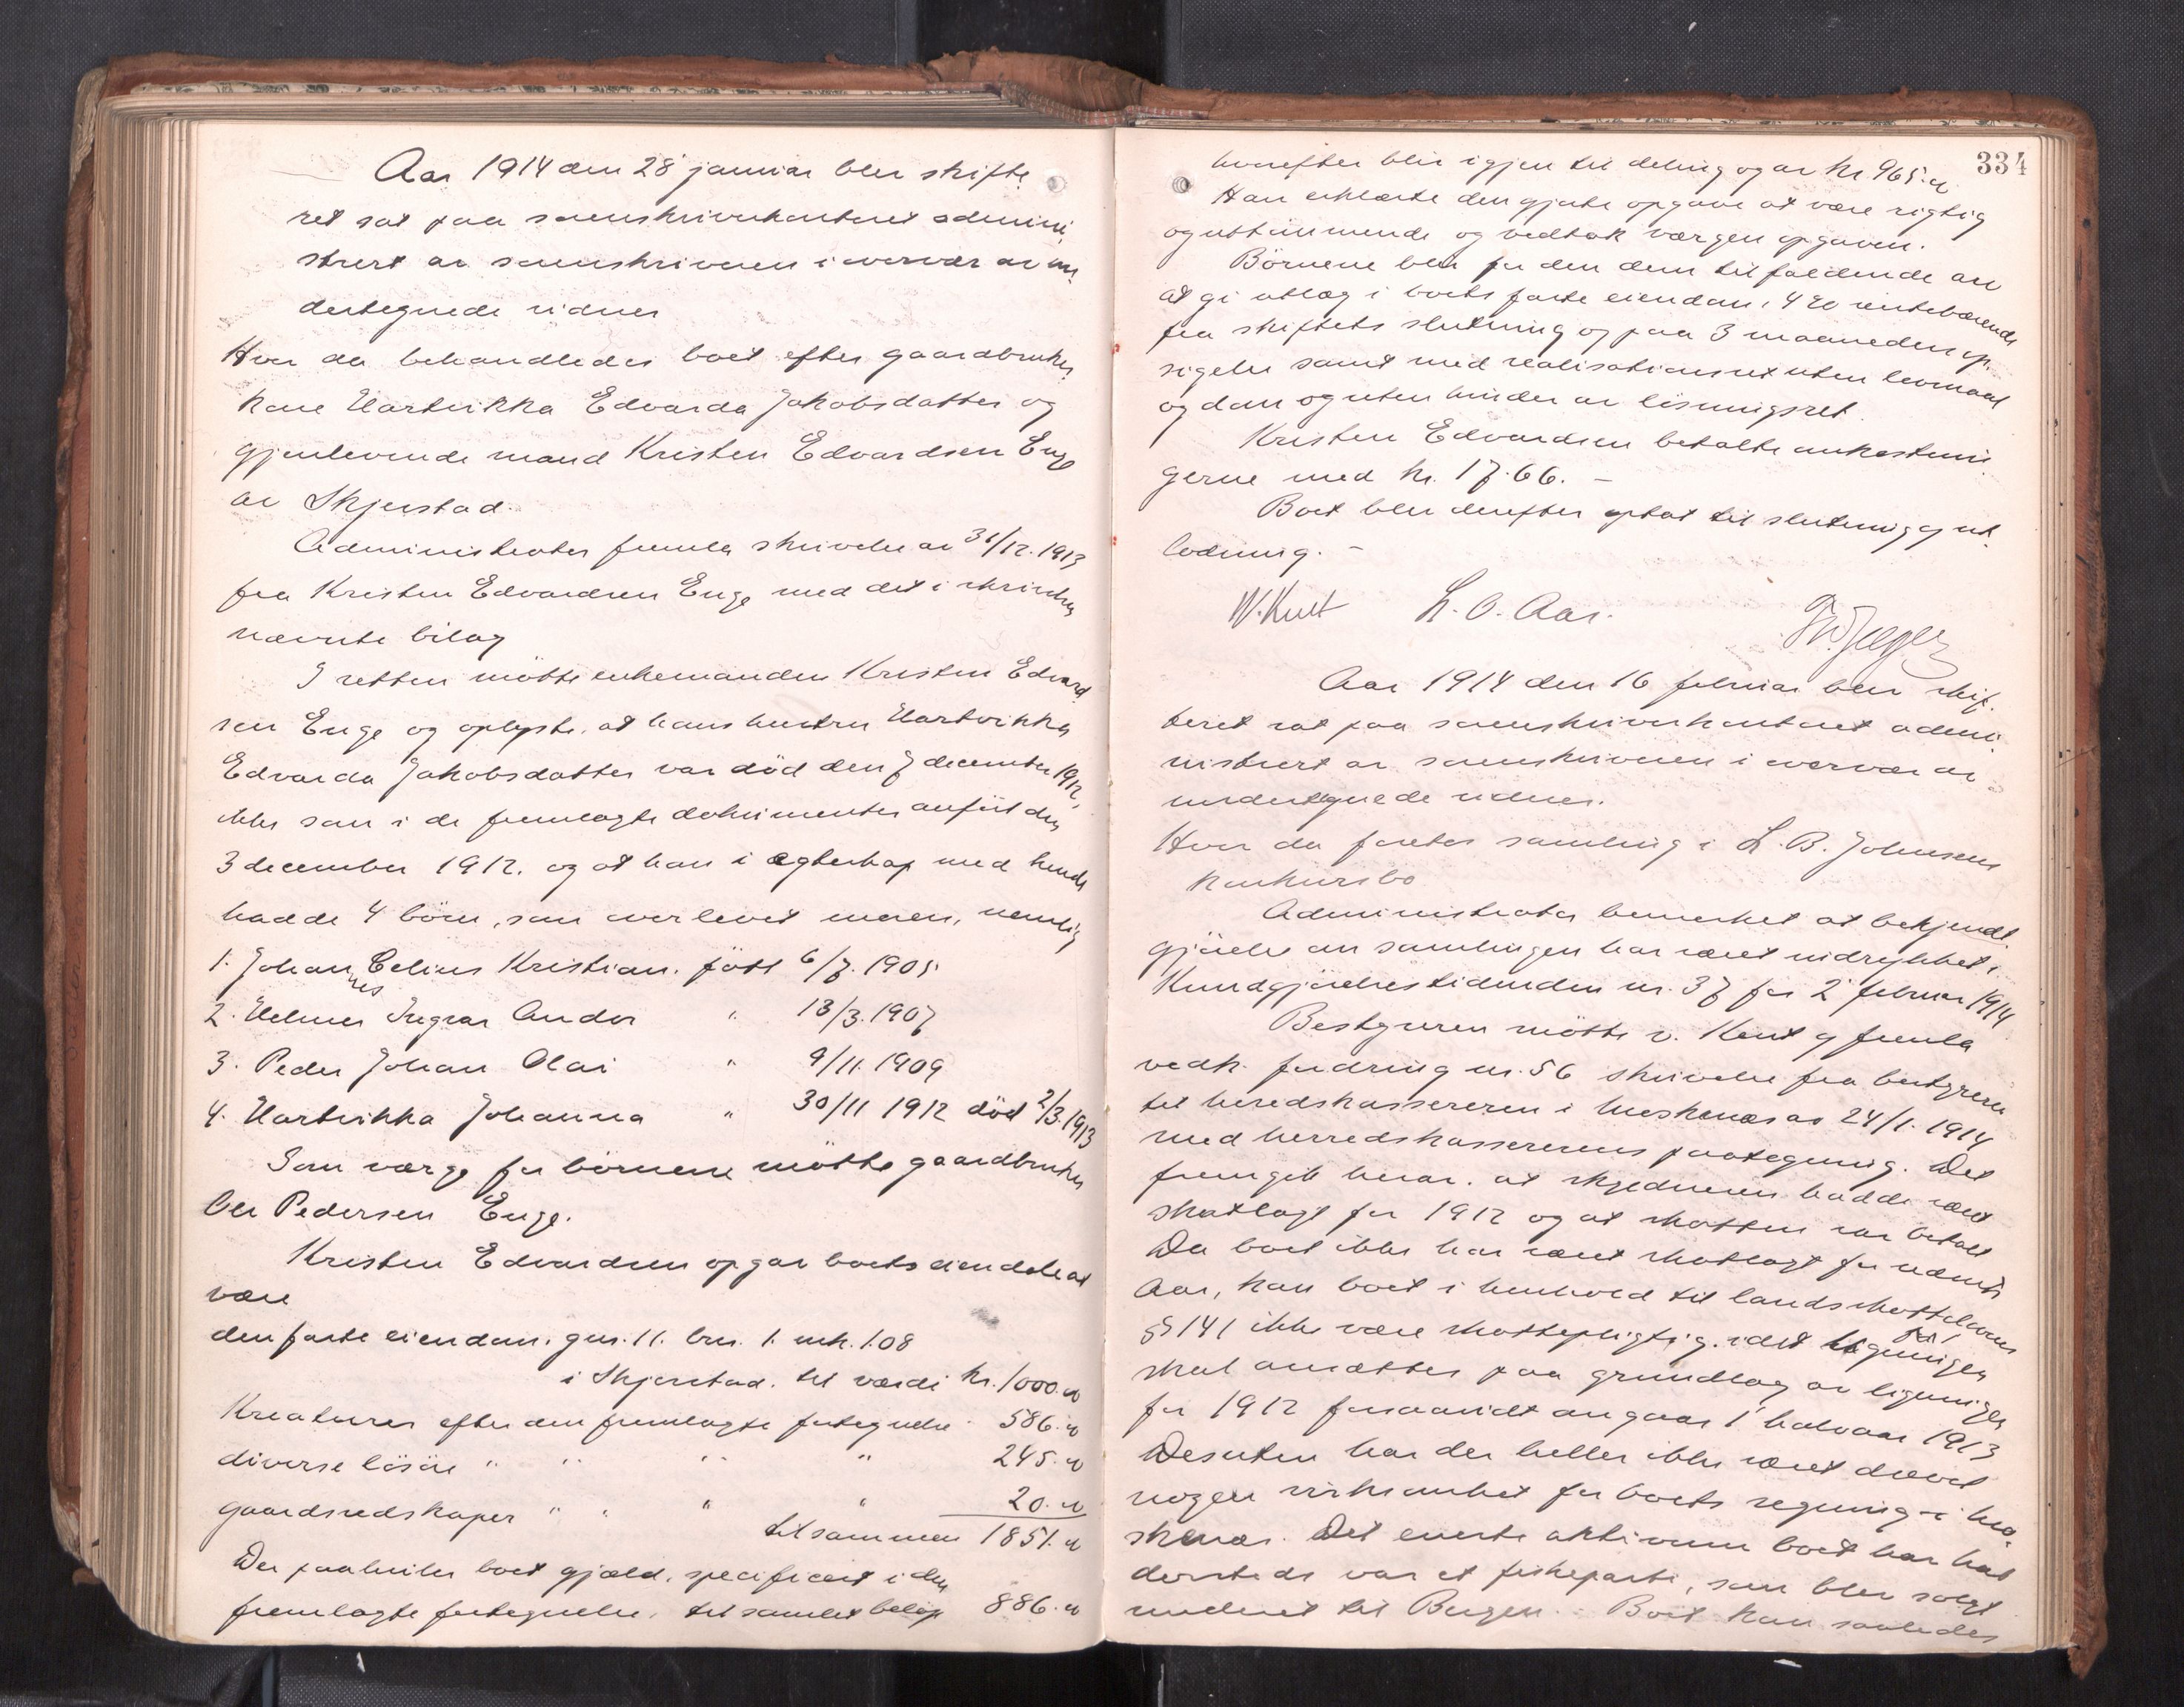 Aar 1914 den 28 januar blev skifte
ret sat paa sorenskriverkontoret admini
strert av sorenskriveren i overvær av un
dertegnede vidner
Hvor da behandledes boet efter gaardbruker
kone Hartvikka Edvarda Jakobsdatter og
gjenlevende mand Kristen Edvardsen Enge
av Skjerstad.
Administrator fremla skrivelse av 31/12. 1913
fra Kristen Edvardsen Enge med det i skrivelsen
nævnte bilag
I retten mötte enkemanden Kristen Edvard
sen Enge og oplyste, at hans hustru Hartvikka
Edvarda Jakobsdatter var död den 7 december 1912,
ikke som i de fremlagte dokumenter anfört den
3 december 1912. og at han i egteskap med hende
hadde 4 börn, som overlevet moren, nemlig
1. Johannes Celius Kristian. född 6/7. 1905
2. Helmer Ingvar Andor " 13/3. 1907
3. Peder Johan Olai " 9/11. 1909
4. Hartvikka Johanna " 30/11 1912 död 2/3. 1913
Som værge for börnene mötte gaardbruker
Ole Pedersen Enge.
Kristen Edvardsen opgav boets eiendele at
være
den faste eiendom. gnr. 11. brn. 1. mk. 1.08
i Skjerstad. til værdi kr. 1000.00
Kreaturer efter den fremlagte fortegnelse 586.00
diverse lösöre " " " " 245.00
gaardsredskaper " " " " 20.00
tilsammen 1851.00
Der paahviler boet gjæld, specificert i den
fremlagte fortegnelse, til samlet belöp 886.00
334
hvorefter blir igjen til deling og av kr. 965.00
Han erklærte den gjorte opgave at være rigtig
og uttömmende og vedtok værgen opgaven.
Börnene blev for den dem tilfaldende arv
at gi utlæg i boets faste eiendom, 4 % rentebærende
fra skiftets slutning og paa 3 maaneders op
sigelse samt med realisationsret uten lovmaal
og dom og uten hinder av lösningsret.
Kristen Edvardsen betalte omkostnin
gerne med kr. 17.66. –
Boet blev derefter optat til slutning og ut
lodning. –
W. Kult L. O. Aas.
Aar 1914 den 16 februar blev skif.
teret sat paa sorenskriverkontoret admi
nistrert av sorenskriveren i overvær av
undertegnede vidner.
Hvor da foretas samling i L. B. Johnsens
konkursbo
Administrator bemerket at bekjendt
gjörelse om samlingen har været indrykket i
Kundgjörelsestidenden nr. 37 for 2 februar 1914
Bestyreren mötte v. Kent og fremla
vedk. fordring nr. 56 skrivelse fra bestyreren
til herredskassereren i av 24/1. 1914
med herredskassererens paategning. Det
fremgik herav. at skyldneren hadde været
skatlagt for 1912 og at skatten var betalt
Da boet ikke har været skatlagt for nævnte
Aar, kan boet i henhold til landsskattelovens
§ 141 ikke være skattepligtig. idet ligningen
skal ansættes paa grundlag av ligningen
for 1912 forsaavidt angaar 1 halvaar 1913
Desuten har der heller ikke været drevet
nogen virksomhet for boets regning i
Det eneste aktivum boet har hat
dersteds var et fiskeparti, som blev solgt
til Bergen. Boet kan saaledes